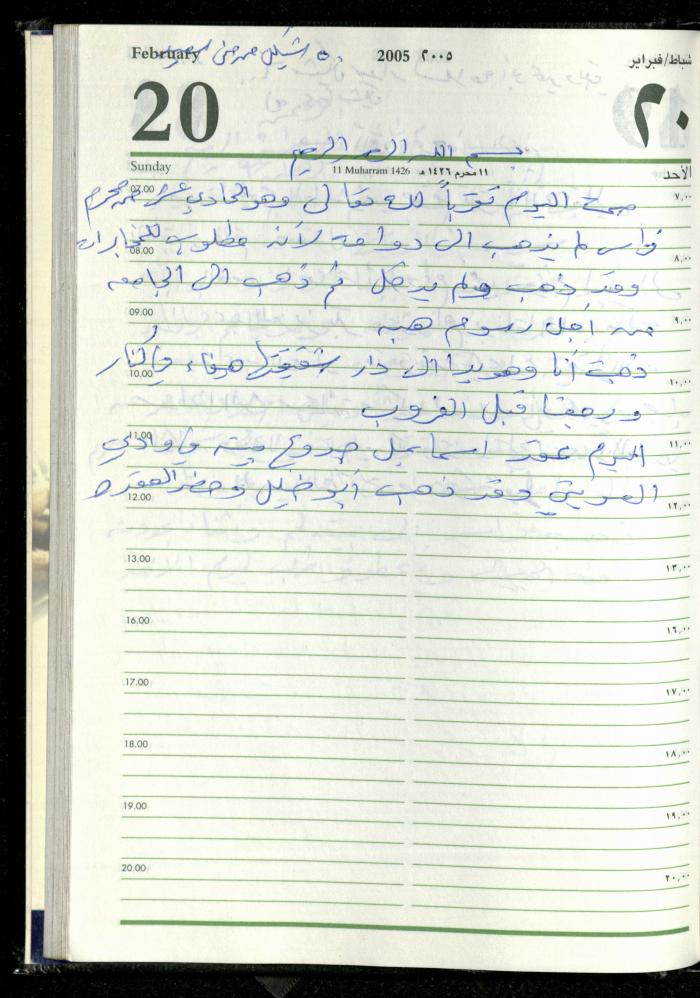 February 2005 ٢٠٠٥ شباط/فبراير
٥ شيكل من
20 ٢٠
بسم الله الرحمن الرحيم
Sunday 11 Muharram 1426 ١١ محرم ١٤٢٦ هـ الأحد
07.00 ٧,٠٠
اليوم تقرباً لله تعالى وهو الحادي عشر من محرم
فراس لم يذهب الى دوامه لأنه مطلوب للمخابرات
08.00 ٨,٠٠
وقد ذهب ولم يدخل ثم ذهب الى الجامعه
09.00 ٩,٠٠
من اجل رسوم هبه
ذهبت أنا وهويدا الى دار شقيقتها هيفاء
10.00 ١٠,٠٠
ورجعنا قبل الغروب
11.00 ١١,٠٠
اليوم عقد اسماعيل
12.00 ١٢,٠٠
وقد ذهب أبو خليل وحضر العقد
13.00 ١٣,٠٠
16.00 ١٦,٠٠
17.00 ١٧,٠٠
18.00 ١٨,٠٠
19.00 ١٩,٠٠
20.00 ٢٠,٠٠